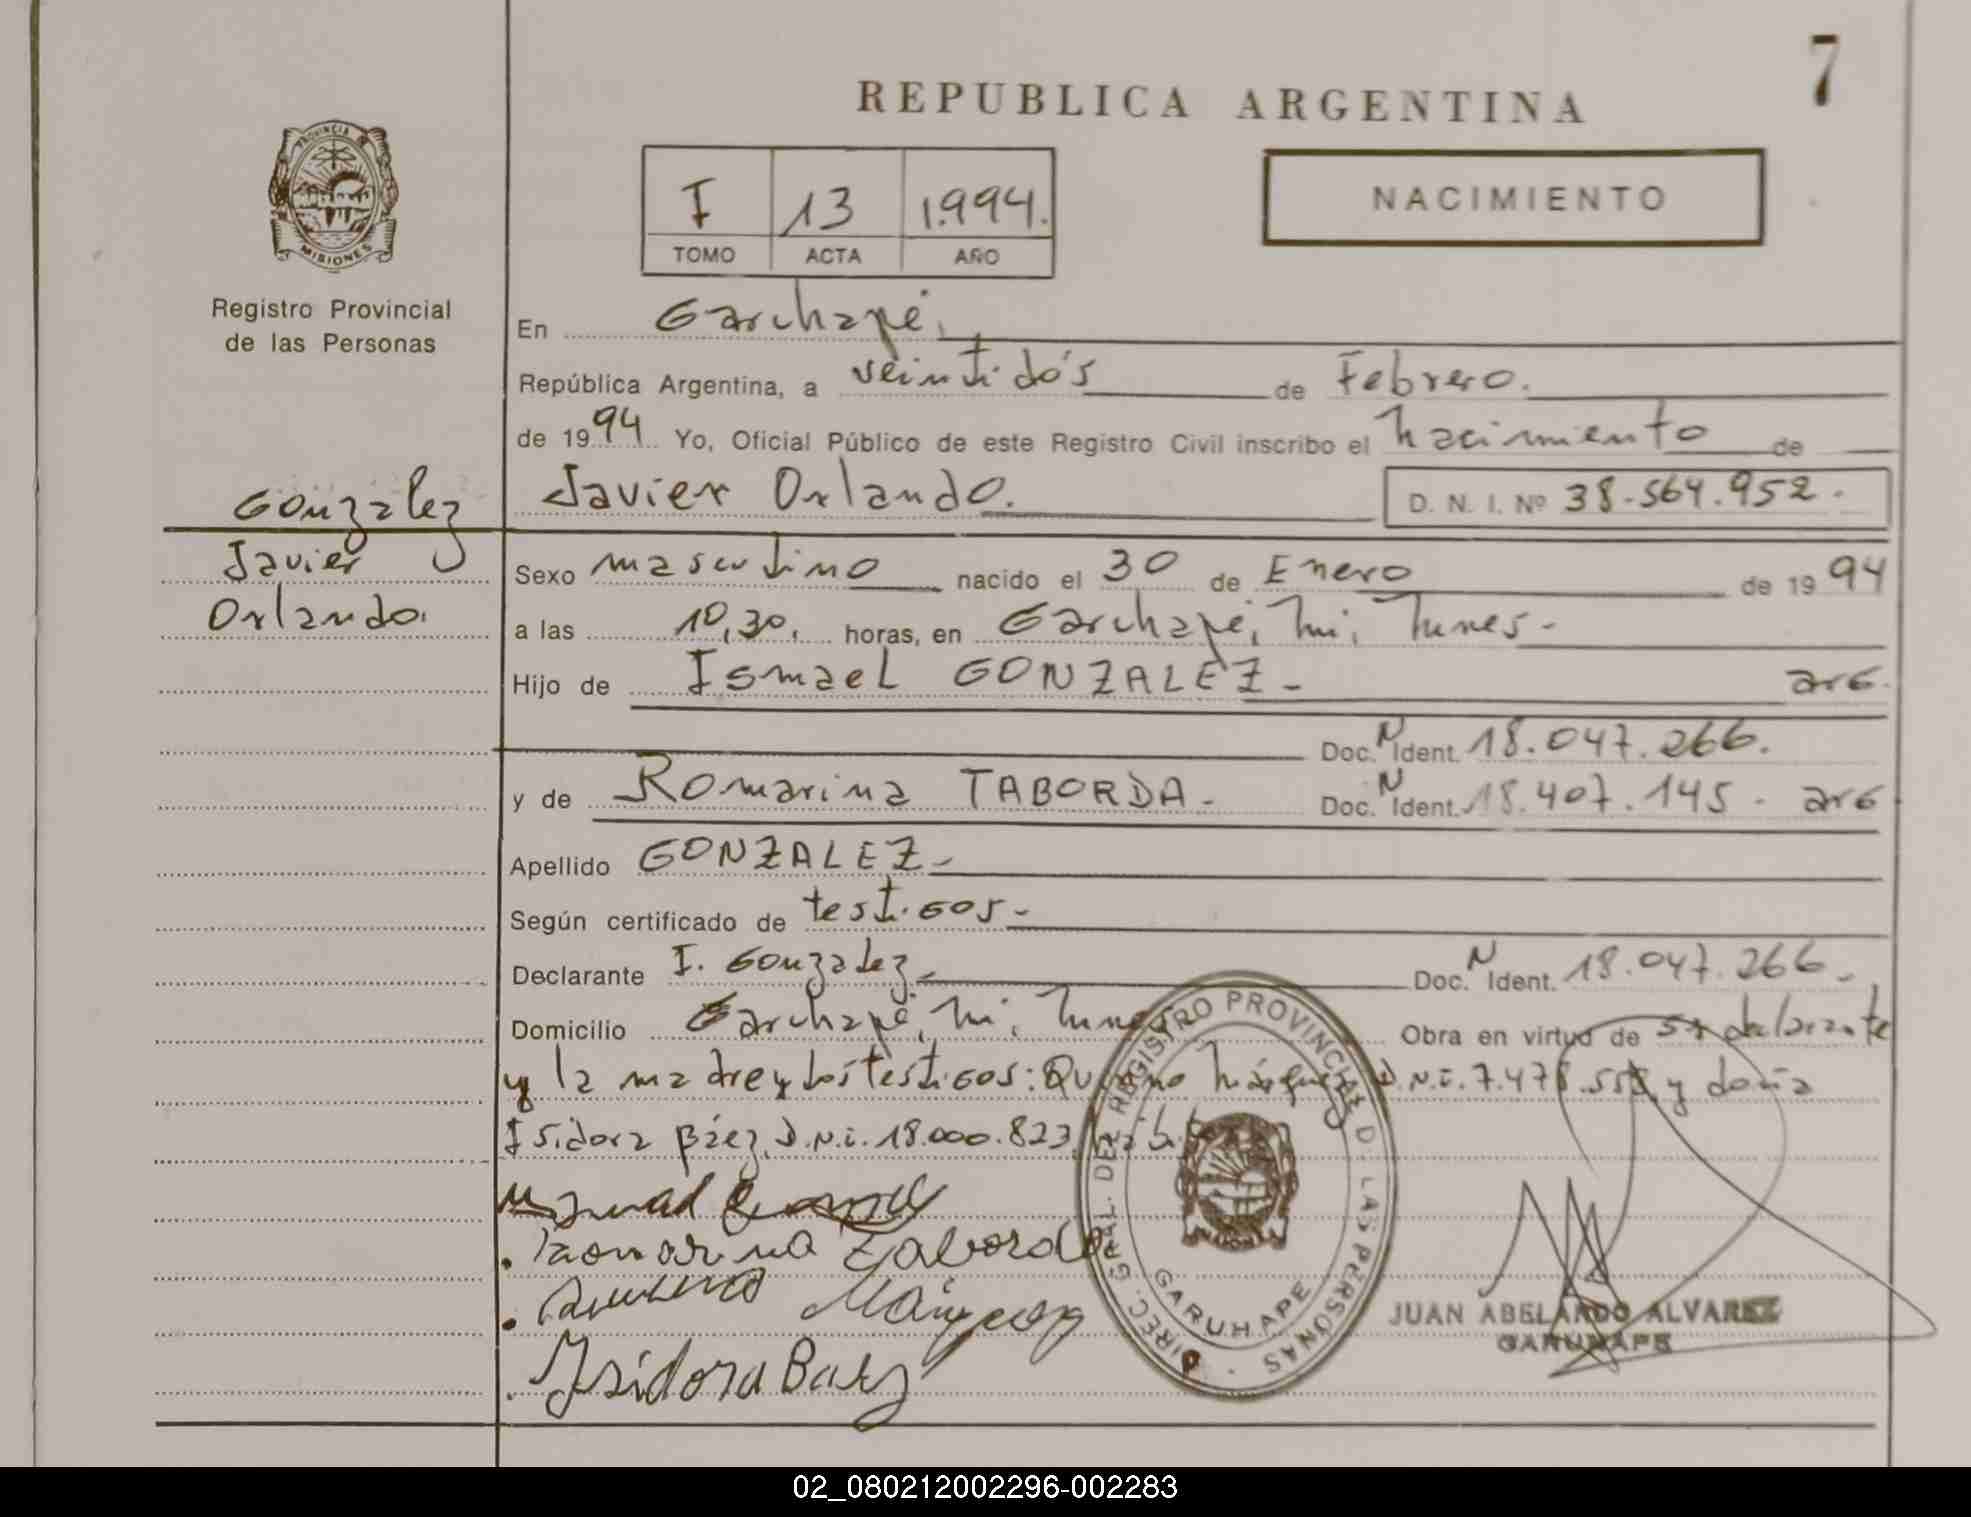 7
REPUBLICA ARGENTINA
PROVINCIA
MISIONES
Registro Provincial
de las Personas
I 13 1.994.
TOMO ACTA AÑO
NACIMIENTO
En Garuhapé,
República Argentina, a veintidós de Febrero.
de 1994 Yo, Oficial Público de este Registro Civil inscribo el nacimiento de
Gonzalez
Javier
Orlando.
Javier Orlando. D. N. I. Nº 38.564.952.
Sexo masculino nacido el 30 de Enero de 1994
a las 10,30, horas, en Garuhapé, Mi,
Hijo de Ismael GONZALEZ - arg.
Doc. N Ident. 18.047.266.
y de Romarina TABORDA - Doc. N Ident. 18.407.145 - arg
Apellido GONZALEZ -
Según certificado de testigos -
Declarante I. Gonzalez - Doc. N Ident. 18.047.266 -
Domicilio Garuhapé, Mi, Obra en virtud de ser declarante
y la madre y los testigos: D.N.I. 7.478.555, y doña
Isidora Báez, D.N.I. 18.000.823,
Romarina Taborda
Isidora Baez
DIREC. GRAL. DEL REGISTRO PROVINCIAL DE LAS PERSONAS
GARUHAPE
JUAN ABELARDO ALVAREZ
GARUHAPE
02_080212002296-002283